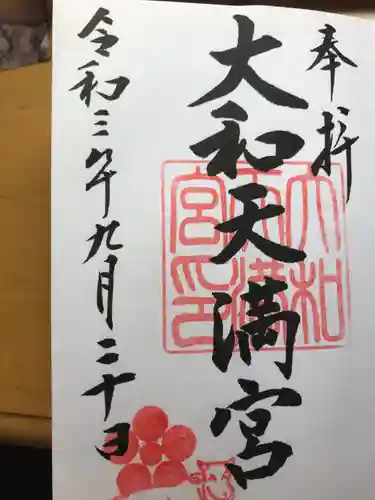 奉拝
大和天満宮
大和天満宮印
令和三年九月二十日